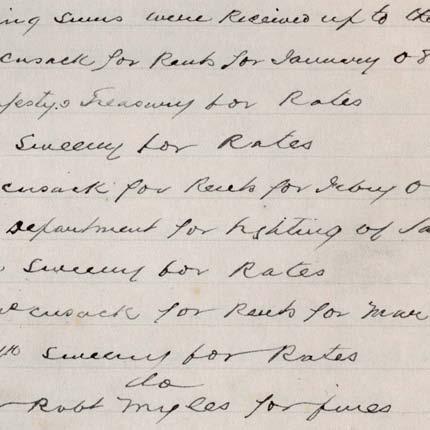 ing Sums were Received up to the
cusack for Rents for January 08
ajesty,s Treasury for Rates
Sweeny for Rates
cusack for Rents for Febry 0
Department for lighting of
Sweeny for Rates
cusack for Rents for Mar
Sweeny for Rates
do
Robt Myles for fines